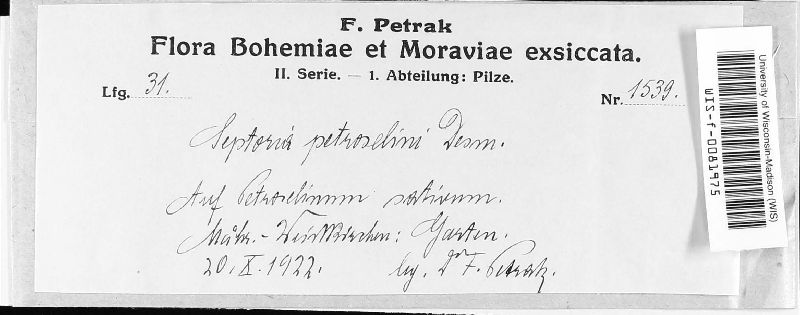 F. Petrak
Flora Bohemiae et Moraviae exsiccata.
II. Serie. — 1. Abteilung: Pilze.
Lfg. 31.
Nr. 1539.
Septoria petroselini Desm.
Auf Petroselinum sativum.
Mähr.-Weisskirchen: Garten.
20. X. 1922. leg. Dr F. Petrak.
University of Wisconsin-Madison (WIS)
WIS-f-0081975